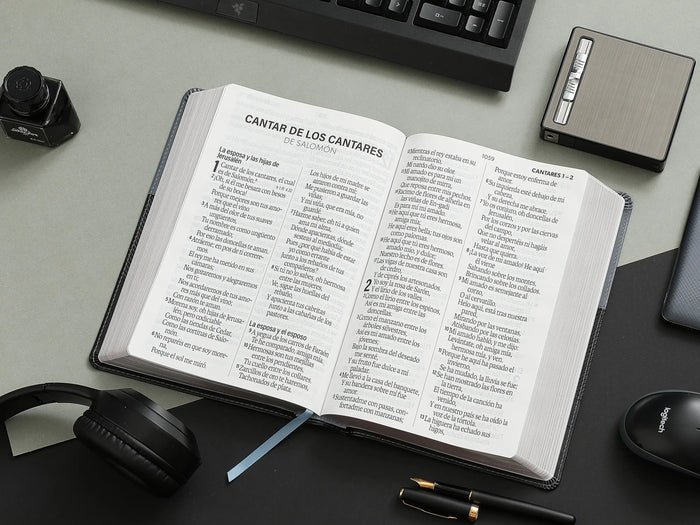 CANTAR DE LOS CANTARES
DE SALOMÓN
La esposa y las hijas de
Jerusalén
1 Cantar de los cantares, el cual
es de Salomón.
2 ¡Oh, si él me besara con besos
de su boca!
Porque mejores son tus amo-
res que el vino.
3 A más del olor de tus suaves
ungüentos,
Tu nombre es como ungüento
derramado;
Por eso las doncellas te aman.
4 Atráeme; en pos de ti correre-
mos.
El rey me ha metido en sus
cámaras;
Nos gozaremos y alegraremos
en ti;
Nos acordaremos de tus amo-
res más que del vino;
Con razón te aman.
5 Morena soy, oh hijas de Jerusa-
lén, pero codiciable
Como las tiendas de Cedar,
Como las cortinas de Salo-
món.
6 No reparéis en que soy more-
na,
Porque el sol me miró.
Los hijos de mi madre se
airaron contra mí;
Me pusieron a guardar las
viñas;
Y mi viña, que era mía, no
guardé.
7 Hazme saber, oh tú a quien
ama mi alma,
Dónde apacientas, dónde
sesteas al mediodía;
Pues ¿por qué había de estar
yo como errante
Junto a los rebaños de tus
compañeros?
8 Si tú no lo sabes, oh hermosa
entre las mujeres,
Ve, sigue las huellas del
rebaño,
Y apacienta tus cabritas
junto a las cabañas de los
pastores.
La esposa y el esposo
9 A yegua de los carros de Faraón
Te he comparado, amiga mía.
10 Hermosas son tus mejillas
entre los pendientes,
Tu cuello entre los collares.
11 Zarcillos de oro te haremos,
Tachonados de plata.
1059
CANTARES 1–2
12 Mientras el rey estaba en su
reclinatorio,
Mi nardo dio su olor.
13 Mi amado es para mí un
manojito de mirra,
Que reposa entre mis pechos.
14 Racimo de flores de alheña en
las viñas de En-gadi
Es para mí mi amado.
15 He aquí que tú eres hermosa,
amiga mía;
He aquí eres bella; tus ojos son
como palomas.
16 He aquí que tú eres hermoso,
amado mío, y dulce;
Nuestro lecho es de flores.
17 Las vigas de nuestra casa son
de cedro,
Y de ciprés los artesonados.
2 Yo soy la rosa de Sarón,
Y el lirio de los valles.
2 Como el lirio entre los espinos,
Así es mi amiga entre las
doncellas.
3 Como el manzano entre los
árboles silvestres,
Así es mi amado entre los
jóvenes;
Bajo la sombra del deseado
me senté,
Y su fruto fue dulce a mi
paladar.
4 Me llevó a la casa del banquete,
Y su bandera sobre mí fue
amor.
5 Sustentadme con pasas, con-
fortadme con manzanas;
Porque estoy enferma de
amor.
6 Su izquierda esté debajo de mi
cabeza,
Y su derecha me abrace.
7 Yo os conjuro, oh doncellas de
Jerusalén,
Por los corzos y por las ciervas
del campo,
Que no despertéis ni hagáis
velar al amor,
Hasta que quiera.
8 ¡La voz de mi amado! He aquí
él viene
Saltando sobre los montes,
Brincando sobre los collados.
9 Mi amado es semejante al
corzo,
O al cervatillo.
Helo aquí, está tras nuestra
pared,
Mirando por las ventanas,
Atisbando por las celosías.
10 Mi amado habló, y me dijo:
Levántate, oh amiga mía,
hermosa mía, y ven.
11 Porque he aquí ha pasado el
invierno,
Se ha mudado, la lluvia se fue;
12 Se han mostrado las flores en
la tierra,
El tiempo de la canción ha
venido,
Y en nuestro país se ha oído la
voz de la tórtola.
13 La higuera ha echado sus
higos,
logitech